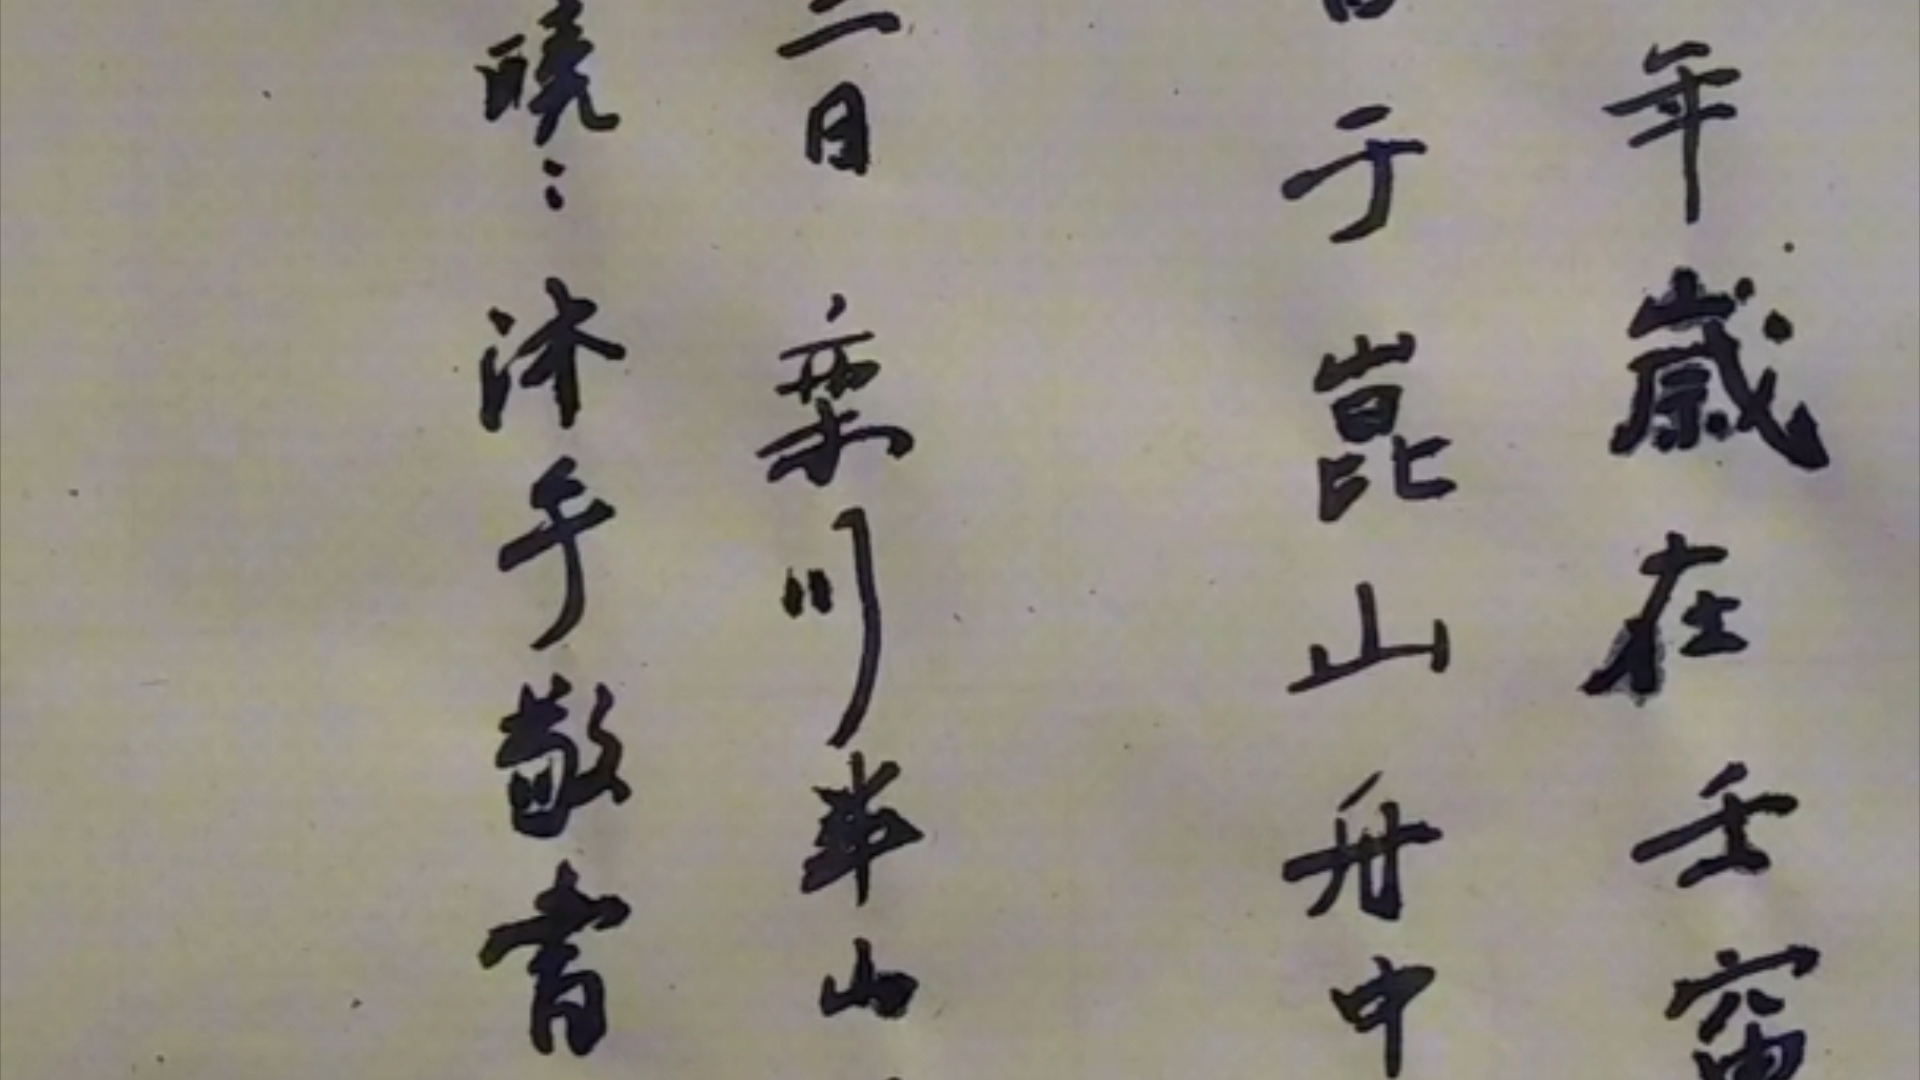 年歲在壬寅
于崑山舟中
二日 栗川半山
曉：沐手敬書